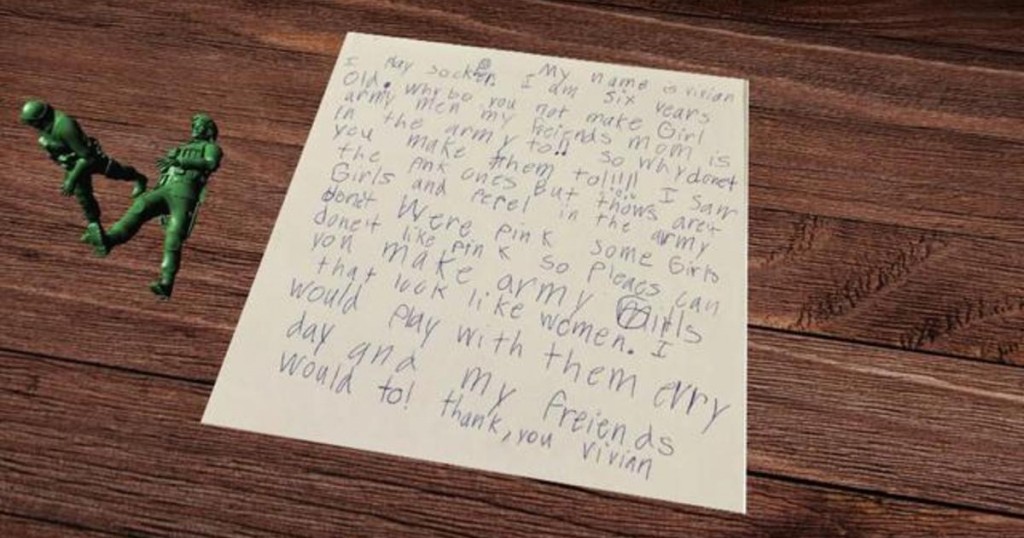 My name is vivian
I Play socker. I am six years
Old. Why Do you not make Girl
army men my freinds mom is
in the army to!! so why donet
you make them to!!!!! I saw
the pink ones But thows are't
Girls and PePel in the army
donet Were Pink some Girls
doneit like Pink so Pleaes can
you make army Girls
that look like women. I
would Play with them evry
day and my freiends
would to! thank, you vivian